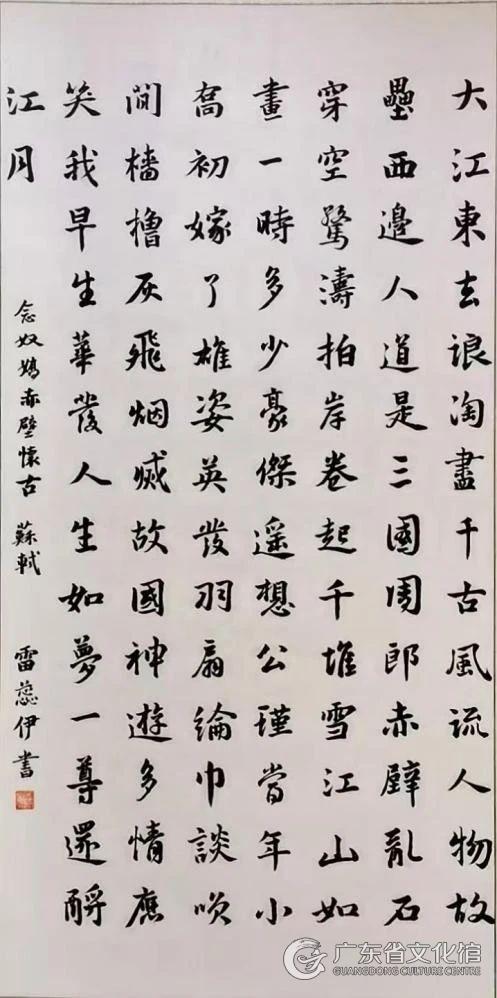 大江東去浪淘盡千古風流人物故
壘西邊人道是三國周郎赤壁亂石
穿空驚濤拍岸卷起千堆雪江山如
畫一時多少豪傑遥想公瑾當年小
喬初嫁了雄姿英發羽扇綸巾談咲
間檣櫓灰飛烟滅故國神遊多情應
笑我早生華發人生如夢一尊還酹
江月
念奴嬌赤壁懷古 蘇軾 雷蕊伊書
广东省文化馆
GUANGDONG CULTURE CENTRE